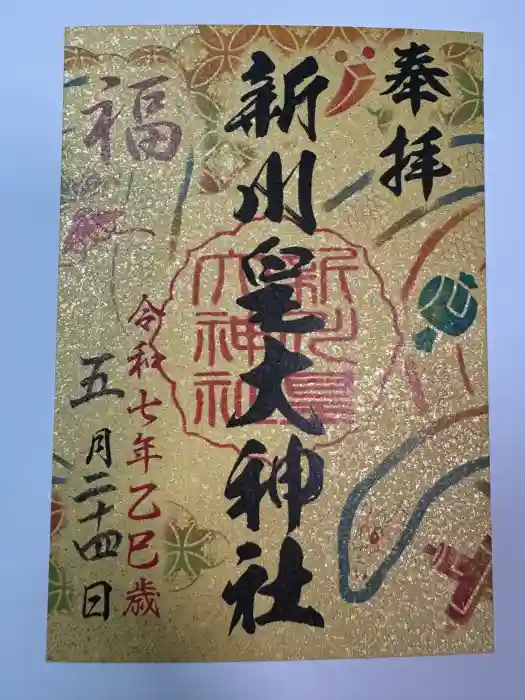 奉拝
新川皇大神社
新川皇
大神社
令和七年乙巳歳
五月二十四日
福